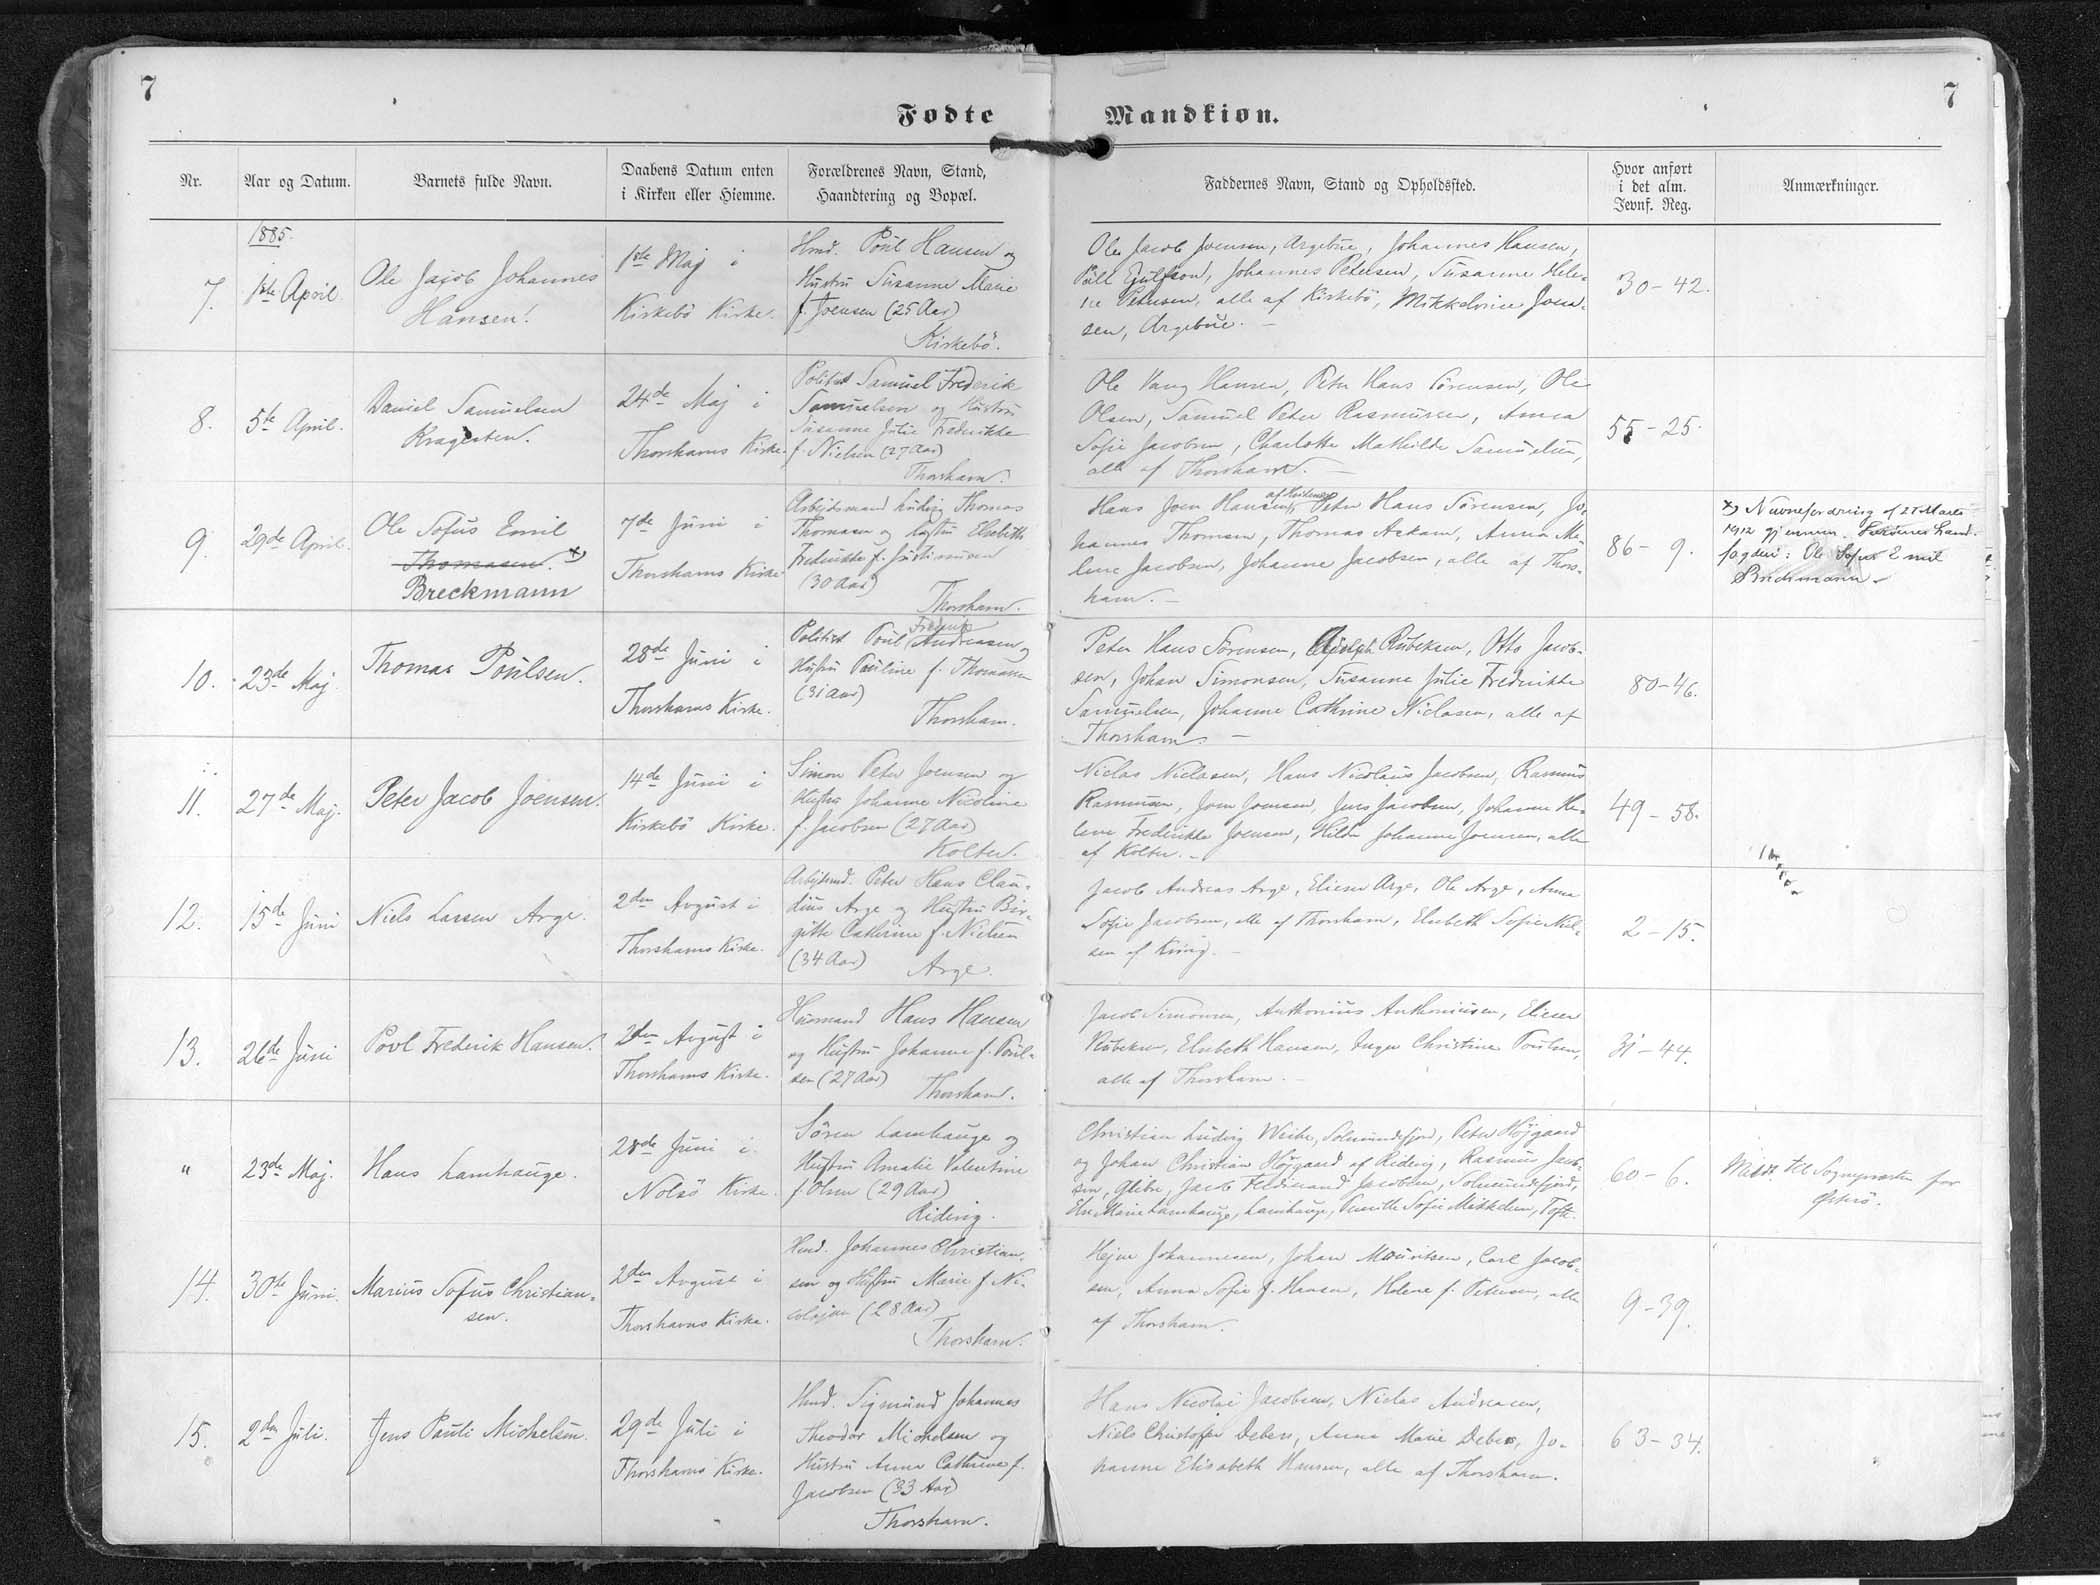 7
7
Fødte Mandkiøn.
Nr.
Aar og Datum.
Barnets fulde Navn.
Daabens Datum enten
i Kirken eller Hiemme.
Forældrenes Navn, Stand,
Haandtering og Bopæl.
Faddernes Navn, Stand og Opholdssted.
Hvor anført
i det alm.
Jevnf. Reg.
Anmærkninger.
1885.
7.
1ste April.
Ole Jacob Johannes
Hansen.
1ste Maj i
Kirkebö Kirke.
Hmd. Poul Hansen og
Hustru Susanne Marie
f. Joensen (25 Aar)
Kirkebö.
Ole Jacob Joensen, Argebue, Johannes Hansen,
Johannes Petersen, Susanne Hele-
ne Petersen, alle af Kirkebö, Mikkeline Joen-
sen, Argebue.
30-42.
8.
5te April.
Daniel Samuelsen
Kragesten.
24de Maj i
Thorshavns Kirke.
Politibt Samuel Frederik
Samuelsen og Hustru
Susanne Julie Frederikke
f. Nielsen (27 Aar)
Thorshavn.
Ole Vang Hansen, Peter Hans Sörensen, Ole
Olsen, Samuel Peter Rasmussen, Anna
Sofie Jacobsen, Charlotte Mathilde Samuelsen,
alle af Thorshavn.
55-25.
9.
29de April.
Ole Sofus Emil
Thomasen. x)
Breckmann
7de Juni i
Thorshavns Kirke
Arbejdsmand Ludvig Thomas
Thomasen og Hustru Elsebeth
Frederikke f. Justinussen
(30 Aar)
Thorshavn.
Hans Joen Hansen, Peter Hans Sörensen, Jo-
hannes Thomsen, Thomas Askam, Anna Ma-
lene Jacobsen, Johanne Jacobsen, alle af Thors-
havn.
86-9.
x) Navneforandring af 27 Marts
1912 gjennem Færöernes Land-
fogderi: Ole Sofus Emil
Breckmann
10.
23de Maj.
Thomas Poulsen.
28de Juni i
Thorshavns Kirke.
Politibt Poul Frederik Andreasen og
Hustru Pauline f. Thomasen
(31 Aar)
Thorshavn.
Peter Hans Sörensen, Adolph Rubeksen, Otto Jacob-
sen, Johan Simonsen, Susanne Julie Frederikke
Samuelsen, Johanne Cathrine Niclasen, alle af
Thorshavn.
80-46.
11.
27de Maj.
Peter Jacob Joensen.
14de Juni i
Kirkebö Kirke.
Simon Peter Joensen og
Hustru Johanne Nicoline
f. Jacobsen (27 Aar)
Kolter.
Niclas Niclasen, Hans Nicolaus Jacobsen, Rasmus
Rasmussen, Joen Joensen, Jens Jacobsen, Johanne He-
lene Frederikke Joensen, Hilda Johanne Joensen, alle
af Kolter.
49-58.
12.
15de Juni
Niels Larsen Arge.
2den Avgust i
Thorshavns Kirke.
Arbejdsmd. Peter Hans Clau-
dius Arge og Hustru Bir-
gitte Cathrine f. Nielsen
(34 Aar)
Arge.
Jacob Andreas Arge, Elieser Arge, Ole Arge, Anna
Sofie Jacobsen, alle af Thorshavn, Elsebeth Sofie Niel-
sen af Kvivig.
2-15.
13.
26de Juni
Povl Frederik Hansen.
2den Avgust i
Thorshavns Kirke.
Husmand Hans Hansen
og Hustru Johanne f. Poul-
sen (27 Aar)
Thorshavn.
Jacob Simonsen, Anthonius Anthoniussen, Elieser
Rubeksen, Elsebeth Hansen, Inger Christine Poulsen,
alle af Thorshavn.
31-44.
"
23de Maj.
Hans Lamhauge.
28de Juni i
Nolsö Kirke.
Sören Lamhauge og
Hustru Amalie Valentine
f. Olsen (29 Aar)
Ridevig.
Christian Ludvig Weihe, Solmundefjord, Peter Höjgaard
og Johan Christian Höjgaard af Ridevig, Rasmus Jacob-
sen, Glibre, Jacob Ferdinand Jacobsen, Solmundefjord,
Else Marie Lamhauge, Lamhauge, Pernille Sofie Mikkelsen, Toft.
60-6.
Medd. til Sognepræsten for
Österö.
14.
30te Juni.
Marius Sofus Christian-
sen.
2den Avgust i
Thorshavns Kirke.
Hmd. Johannes Christian-
sen og Hustru Marie f. Ni-
colajsen (28 Aar)
Thorshavn.
Hejne Johannesen, Johan Mouritsen, Carl Jacob-
sen, Anna Sofie f. Hansen, Helene f. Petersen, alle
af Thorshavn.
9-39.
15.
2den Juli.
Jens Pauli Michelsen.
29de Juli i
Thorshavns Kirke.
Hmd. Sigmund Johannes
Theodor Michelsen og
Hustru Anna Cathrine f.
Jacobsen (33 Aar)
Thorshavn.
Hans Nicolai Jacobsen, Niclas Andreasen,
Niels Christoffer Debes, Anna Marie Debes, Jo-
hanne Elisabeth Hansen, alle af Thorshavn.
63-34.